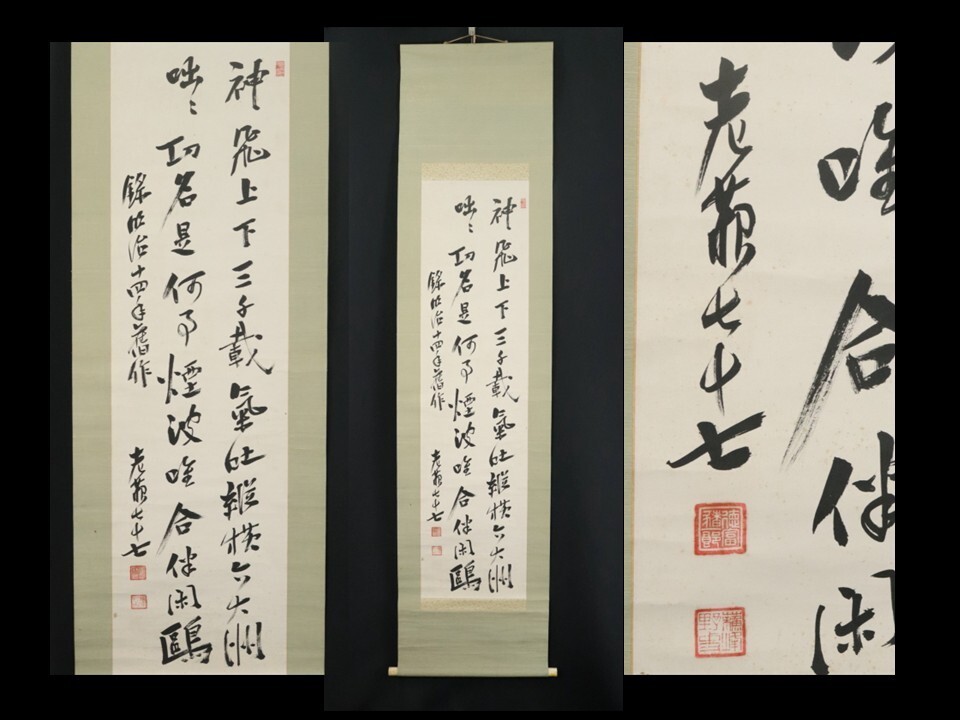 神飛上下三千載氣壮縱横六大洲
咄〻功名是何事煙波唯合伴閑鷗
錄明治十四年舊作
老蘇七十七
神飛上下三千載氣壮縱横六大洲
咄〻功名是何事煙波唯合伴閑鷗
錄明治十四年舊作
老蘇七十七
唯合伴閑
老蘇七十七